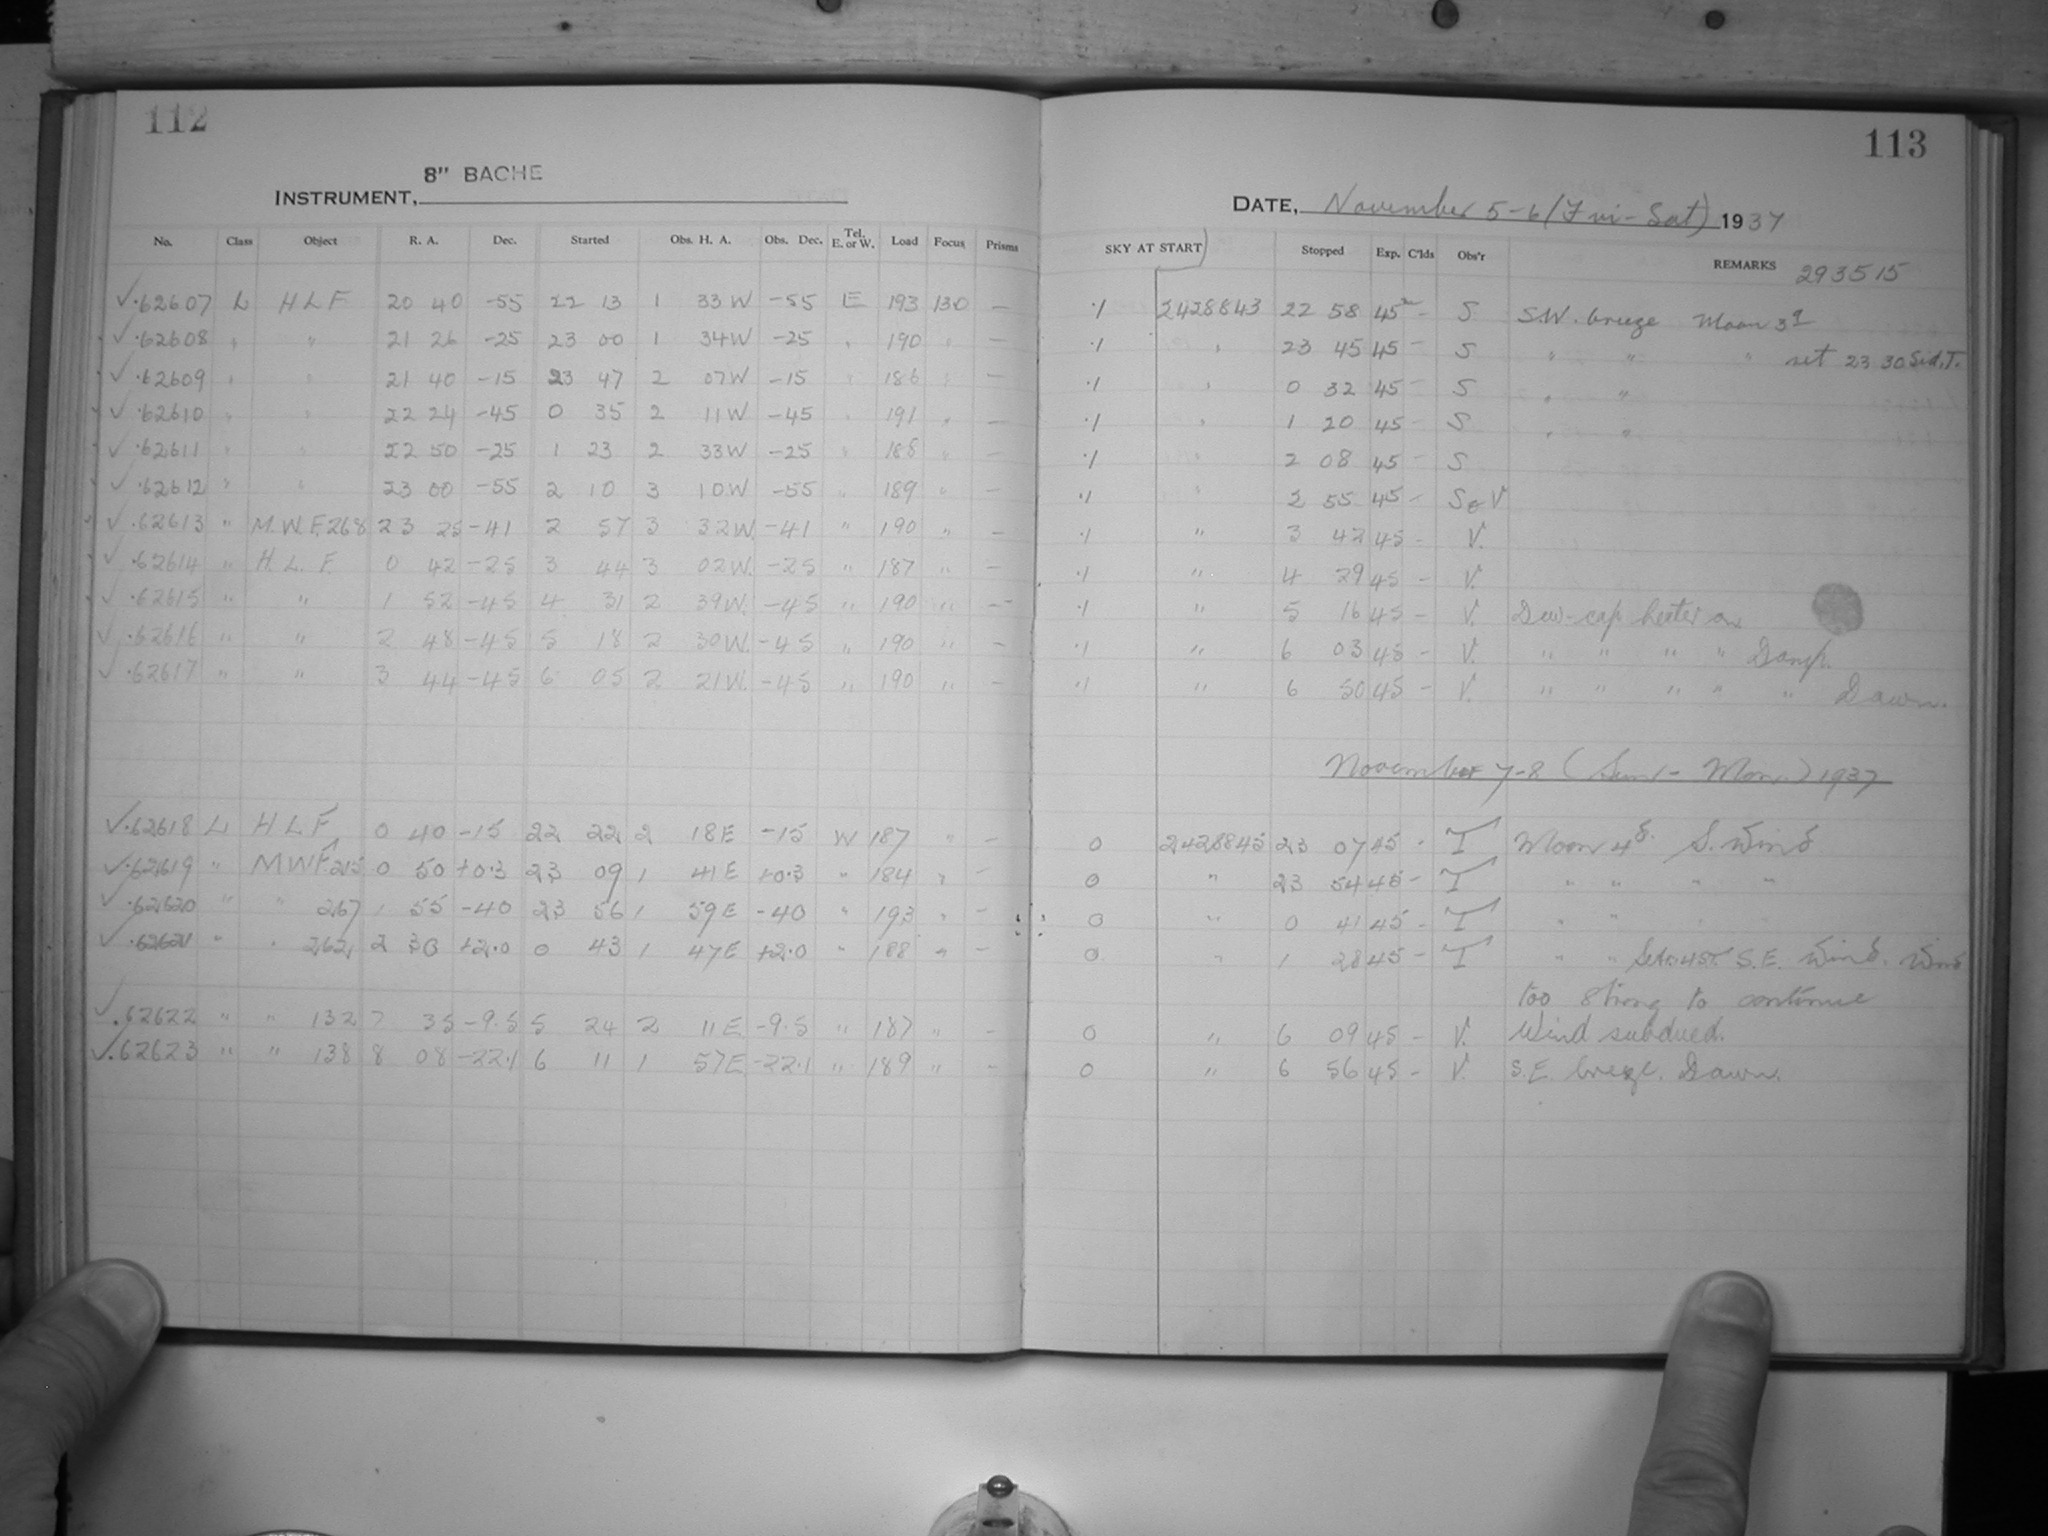 112
8" BACHE
INSTRUMENT,
No. Class Object R. A. Dec. Started Obs. H. A. Obs. Dec. Tel. E. or W. Load Focus Prisms
✓ .62607 L H L F 20 40 -55 22 13 1 33 W -55 E 193 130 -
✓ .62608 " " 21 26 -25 23 00 1 34 W -25 " 190 " -
✓ .62609 " " 21 40 -15 23 47 2 07 W -15 " 186 " -
✓ .62610 " " 22 24 -45 0 35 2 11 W -45 " 191 " -
✓ .62611 " " 22 50 -25 1 23 2 33 W -25 " 188 " -
✓ .62612 " " 23 00 -55 2 10 3 10 W -55 " 189 " -
✓ .62613 " M. W. F. 268 23 25 -41 2 57 3 32 W. -41 " 190 " -
✓ .62614 " H. L. F. 0 42 -25 3 44 3 02 W. -25 " 187 " -
✓ .62615 " " 1 52 -45 4 31 2 39 W. -45 " 190 " -
✓ .62616 " " 2 48 -45 5 18 2 30 W. -45 " 190 " -
✓ .62617 " " 3 44 -45 6 05 2 21 W. -45 " 190 " -
✓ .62618 L H L F 0 40 -15 22 22 2 18 E -15 W 187 " -
✓ .62619 " M W F. 215 0 50 +0.3 23 09 1 41 E +0.3 " 184 " -
✓ .62620 " " 267 1 55 -40 23 56 1 59 E -40 " 193 " -
✓ .62621 " " 262 2 30 +2.0 0 43 1 47 E +2.0 " 188 " -
✓ .62622 " " 132 7 35 -9.5 5 24 2 11 E -9.5 " 187 " -
✓ .62623 " " 138 8 08 -22.1 6 11 1 57 E -22.1 " 189 " -
113
DATE, November 5-6 (Fri - Sat) 1937
SKY AT START Stopped Exp. C'lds Obs'r REMARKS 293515
.1 2428843 22 58 45 - S S.W. breeze Moon 3
.1 " 23 45 45 - S " " " set 23 30 Sid. T.
.1 " 0 32 45 - S " "
.1 " 1 20 45 - S " "
.1 " 2 08 45 - S
.1 " 2 55 45 - S & V
.1 " 3 42 45 - V.
.1 " 4 29 45 - V.
.1 " 5 16 45 - V. Dew-cap heater on
.1 " 6 03 45 - V. " " " " Damp.
.1 " 6 50 45 - V. " " " " " Dawn.
November 7-8 (Sun - Mon.) 1937
0 2428845 23 07 45 - T Moon 4 S. Wind
0 " 23 54 45 - T " " " "
0 " 0 41 45 - T " "
0 " 1 28 45 - T " " S.E. Wind. Wind
too strong to continue
0 " 6 09 45 - V. Wind subdued.
0 " 6 56 45 - V. S.E. breeze. Dawn.